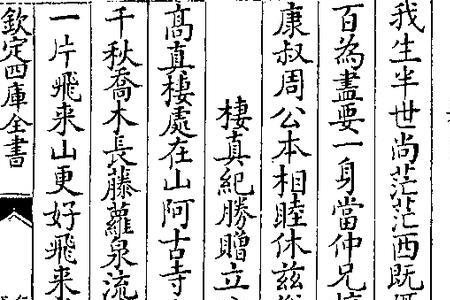 我生半世尚茫茫西既
百為盡要一身當仲兄
康叔周公本相睦休兹
棲真紀勝贈立
高真棲處在山阿古寺
千秋喬木長藤蘿泉流
一片飛来山更好飛来
欽定四庫全書